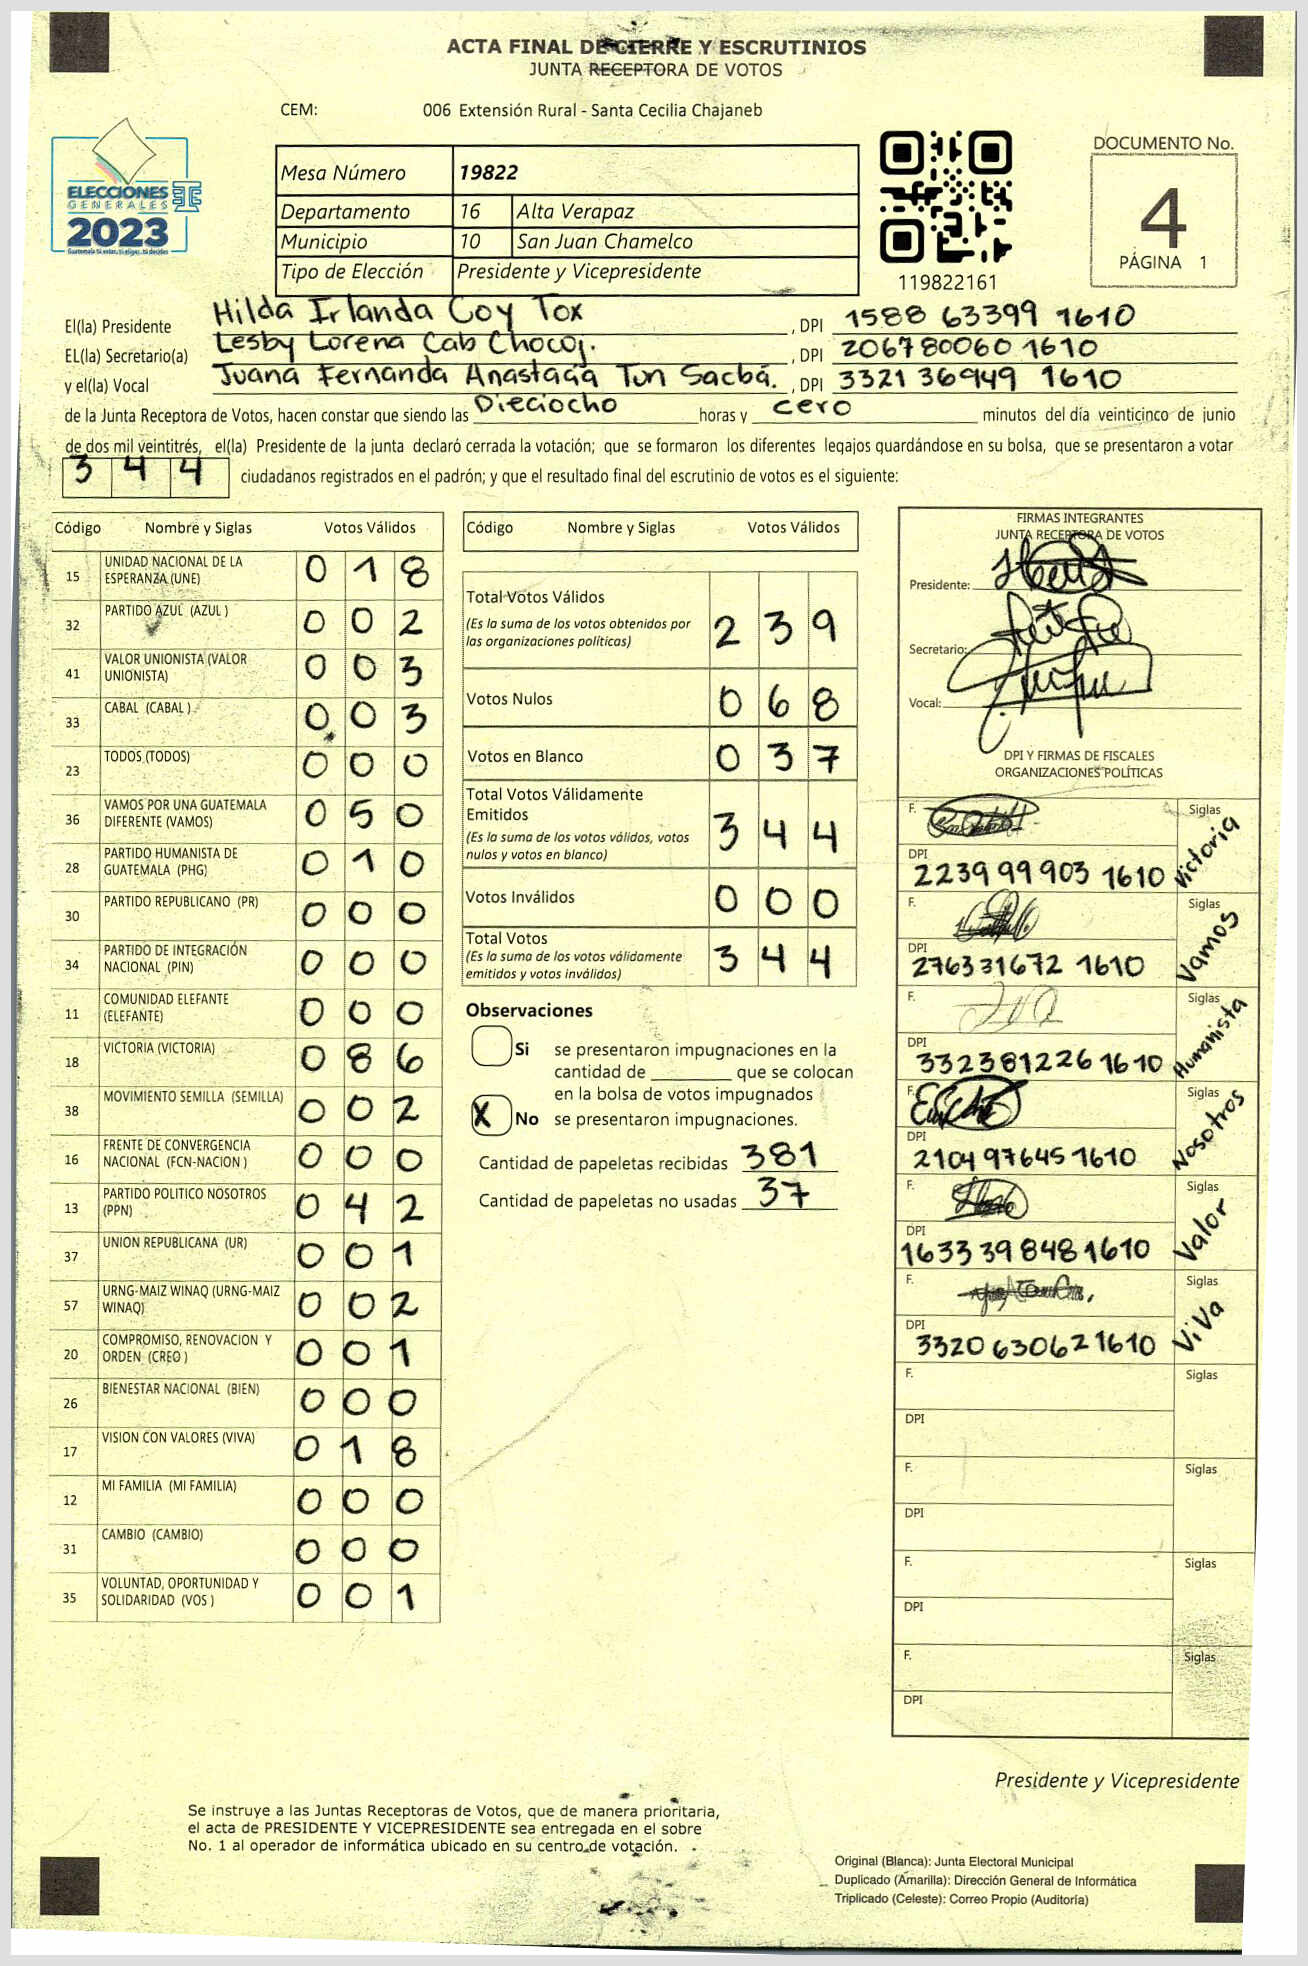 ACTA FINAL DE CIERRE Y ESCRUTINIOS
JUNTA RECEPTORA DE VOTOS
CEM: 006 Extensión Rural - Santa Cecilia Chajaneb
ELECCIONES
GENERALES
2023
Mesa Número 19822
Departamento 16 Alta Verapaz
Municipio 10 San Juan Chamelco
Tipo de Elección Presidente y Vicepresidente
119822161
DOCUMENTO No.
4
PÁGINA 1
El(la) Presidente Hilda Irlanda Coy Tox, DPI 1588 63399 1610
EL(la) Secretario(a) Lesby Lorena Cab Chocoj., DPI 206780060 1610
y el(la) Vocal Juana Fernanda Anastacia Tun Sacbá., DPI 3321 36949 1610
de la Junta Receptora de Votos, hacen constar que siendo las Dieciocho horas y cero minutos del día veinticinco de junio
de dos mil veintitrés, el(la) Presidente de la junta declaró cerrada la votación; que se formaron los diferentes legajos guardándose en su bolsa, que se presentaron a votar
344 ciudadanos registrados en el padrón; y que el resultado final del escrutinio de votos es el siguiente:
Código Nombre y Siglas Votos Válidos
15 UNIDAD NACIONAL DE LA
ESPERANZA (UNE) 0 1 8
32 PARTIDO AZUL (AZUL ) 0 0 2
41 VALOR UNIONISTA (VALOR
UNIONISTA) 0 0 3
33 CABAL (CABAL ) 0 0 3
23 TODOS (TODOS) 0 0 0
36 VAMOS POR UNA GUATEMALA
DIFERENTE (VAMOS) 0 5 0
28 PARTIDO HUMANISTA DE
GUATEMALA (PHG) 0 1 0
30 PARTIDO REPUBLICANO (PR) 0 0 0
34 PARTIDO DE INTEGRACIÓN
NACIONAL (PIN) 0 0 0
11 COMUNIDAD ELEFANTE
(ELEFANTE) 0 0 0
18 VICTORIA (VICTORIA) 0 8 6
38 MOVIMIENTO SEMILLA (SEMILLA) 0 0 2
16 FRENTE DE CONVERGENCIA
NACIONAL (FCN-NACION ) 0 0 0
13 PARTIDO POLITICO NOSOTROS
(PPN) 0 4 2
37 UNION REPUBLICANA (UR) 0 0 1
57 URNG-MAIZ WINAQ (URNG-MAIZ
WINAQ) 0 0 2
20 COMPROMISO, RENOVACION Y
ORDEN (CREO ) 0 0 1
26 BIENESTAR NACIONAL (BIEN) 0 0 0
17 VISION CON VALORES (VIVA) 0 1 8
12 MI FAMILIA (MI FAMILIA) 0 0 0
31 CAMBIO (CAMBIO) 0 0 0
35 VOLUNTAD, OPORTUNIDAD Y
SOLIDARIDAD (VOS ) 0 0 1
Código Nombre y Siglas Votos Válidos
Total Votos Válidos
(Es la suma de los votos obtenidos por
las organizaciones políticas) 2 3 9
Votos Nulos 0 6 8
Votos en Blanco 0 3 7
Total Votos Válidamente
Emitidos
(Es la suma de los votos válidos, votos
nulos y votos en blanco) 3 4 4
Votos Inválidos 0 0 0
Total Votos
(Es la suma de los votos válidamente
emitidos y votos inválidos) 3 4 4
Observaciones
Si se presentaron impugnaciones en la
cantidad de ________ que se colocan
en la bolsa de votos impugnados
X No se presentaron impugnaciones.
Cantidad de papeletas recibidas 381
Cantidad de papeletas no usadas 37
FIRMAS INTEGRANTES
JUNTA RECEPTORA DE VOTOS
Presidente:
Secretario:
Vocal:
DPI Y FIRMAS DE FISCALES
ORGANIZACIONES POLÍTICAS
F. Siglas Victoria
DPI 2239 99903 1610
F. Siglas Vamos
DPI 276331672 1610
F. Siglas Humanista
DPI 332381226 1610
F. Siglas Nosotros
DPI 2104 97645 1610
F. Siglas Valor
DPI 1633 39848 1610
F. Siglas ViVa
DPI 3320 63062 1610
F. Siglas
DPI
F. Siglas
DPI
F. Siglas
DPI
F. Siglas
DPI
Presidente y Vicepresidente
Se instruye a las Juntas Receptoras de Votos, que de manera prioritaria,
el acta de PRESIDENTE Y VICEPRESIDENTE sea entregada en el sobre
No. 1 al operador de informática ubicado en su centro de votación.
Original (Blanca): Junta Electoral Municipal
Duplicado (Amarilla): Dirección General de Informática
Triplicado (Celeste): Correo Propio (Auditoría)